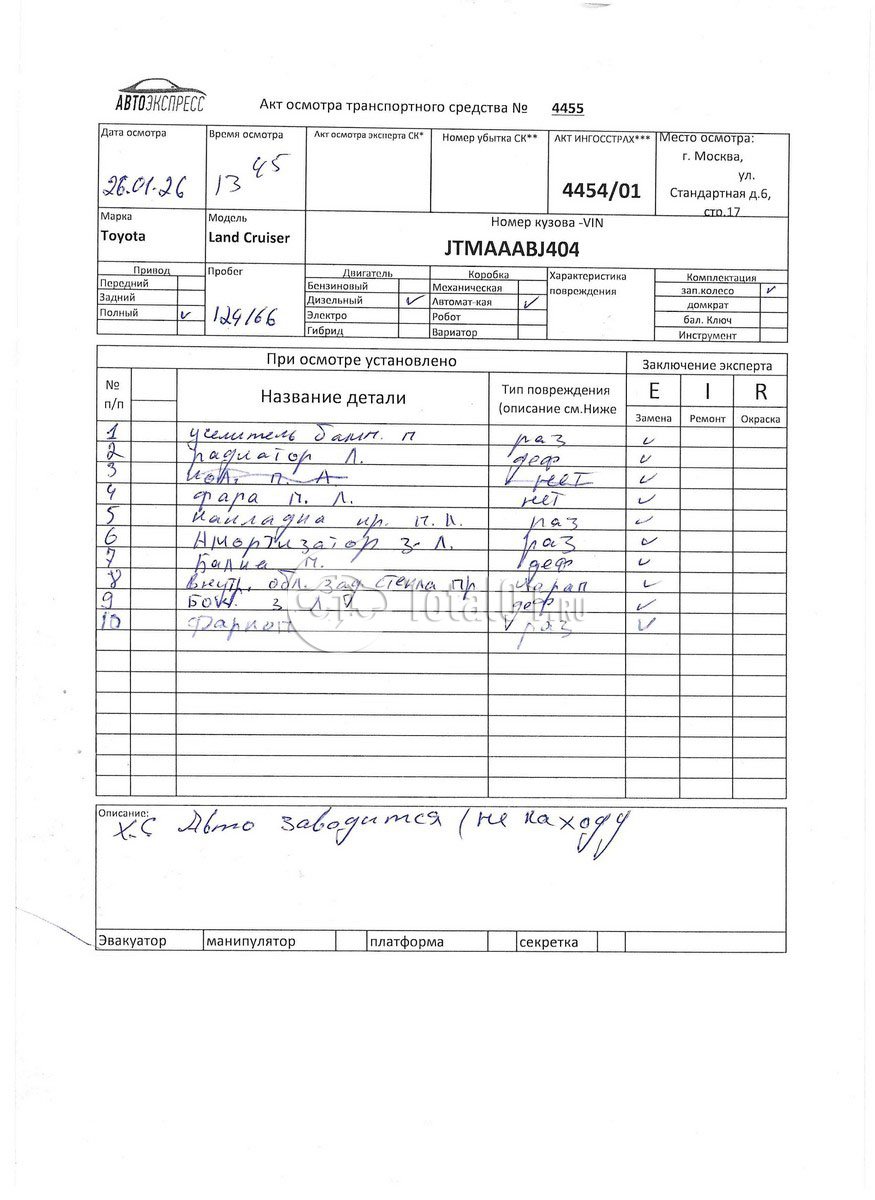 АВТОЭКСПРЕСС
Акт осмотра транспортного средства № 4455
Дата осмотра
26.01.26
Время осмотра
13 45
Акт осмотра эксперта СК*
Номер убытка СК**
АКТ ИНГОССТРАХ***
4454/01
Место осмотра:
г. Москва,
ул.
Стандартная д.6,
стр.17
Марка
Toyota
Модель
Land Cruiser
Номер кузова -VIN
JTMAAABJ404
Привод
Передний
Задний
Полный ✓
Пробег
129166
Двигатель
Бензиновый
Дизельный ✓
Электро
Гибрид
Коробка
Механическая
Автомат-кая ✓
Робот
Вариатор
Характеристика
повреждения
Комплектация
зап.колесо ✓
домкрат
бал. Ключ
Инструмент
При осмотре установлено
Заключение эксперта
№
п/п
Название детали
Тип повреждения
(описание см.Ниже
E I R
Замена Ремонт Окраска
1 уселитель бамп. п раз ✓
2 радиатор Л. деф ✓
3 п. Л. нет ✓
4 фара п. Л. нет ✓
5 накладка пр. п. Л. раз ✓
6 Амортизатор з. Л. раз ✓
7 Балка п. деф ✓
8 Внутр. обл. зад стекла пр царап ✓
9 Бок. з Л. деф ✓
10 Фаркоп раз ✓
Total01.RU
Описание:
Х.С Авто заводится (не на ходу
Эвакуатор манипулятор платформа секретка